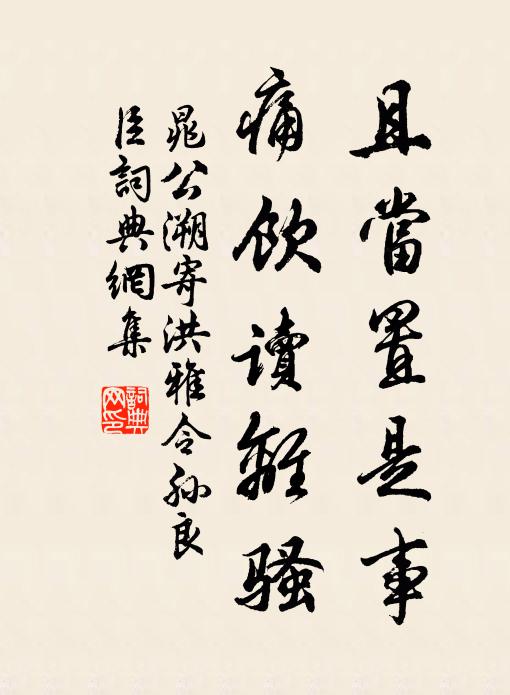 且當置是事
痛飲讀離騷
晁公溯寄洪雅令孙良
臣詞典網集
詞典
网印